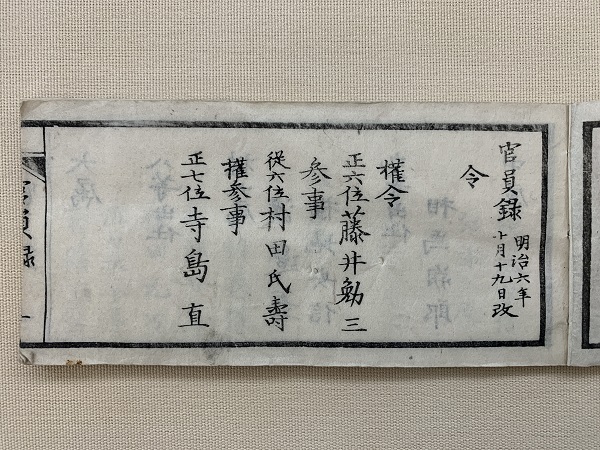 官員録
明治六年
十月十九日改
令
權令
正六位藤井勉三
参事
從六位村田氏壽
權参事
正七位寺島直
官員録
一